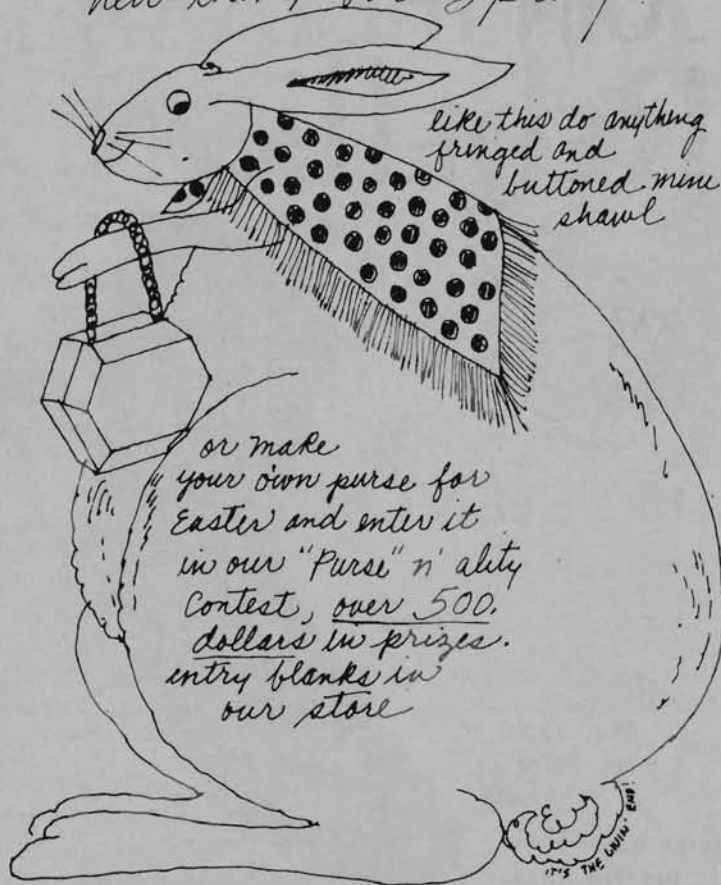 new things for spring
like this do anything
fringed and
buttoned mini
shawl
or make
your own purse for
Easter and enter it
in our "Purse" n' ality
Contest, over 500.
dollars in prizes.
entry blanks in
our store
IT'S THE LIVIN' END!